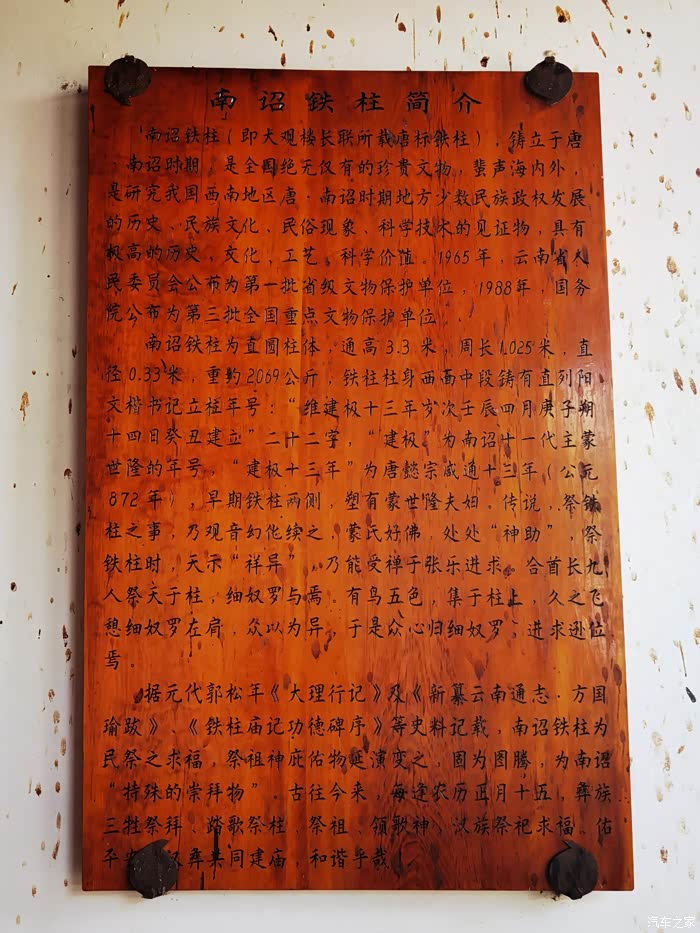 南诏铁柱简介
南诏铁柱（即大观楼长联所载唐标铁柱），铸立于唐
南诏时期，是全国绝无仅有的珍贵文物，蜚声海内外，
是研究我国西南地区唐·南诏时期地方少数民族政权发展
的历史、民族文化、民俗现象、科学技术的见证物，具有
极高的历史、文化，工艺、科学价值。1965年，云南省人
民委员会公布为第一批省级文物保护单位，1988年，国务
院公布为第三批全国重点文物保护单位。
南诏铁柱为直圆柱体，通高3.3米，周长1.025米，直
径0.33米，重约2069公斤，铁柱柱身西面中段铸有直列阳
文楷书记立柱年号：“维建极十三年岁次壬辰四月庚子朔
十四日癸丑建立”二十二字，“建极”为南诏十一代主蒙
世隆的年号，“建极十三年”为唐懿宗咸通十三年（公元
872年），早期铁柱两侧，塑有蒙世隆夫妇。传说，祭铁
柱之事，乃观音幻化续之，蒙氏好佛，处处“神助”，祭
铁柱时，天示“祥异”，乃能受禅于张乐进求。合首长九
人祭天于柱，细奴罗与焉。有鸟五色，集于柱上，久之飞
憩细奴罗左肩，众以为异，于是众心归细奴罗，进求逊位
焉。
据元代郭松年《大理行记》及《新纂云南通志·方国
瑜跋》、《铁柱庙记功德碑序》等史料记载，南诏铁柱为
民祭之求福，祭祖神庇佑物延演变之，固为图腾，为南诏
“特殊的崇拜物” 古往今来 每逢农历正月十五，彝族
三牲祭拜、踏歌祭柱、祭祖、领歌神，汉族祭祀求福、佑
平 彝共同建庙，和谐乎哉
汽车之家